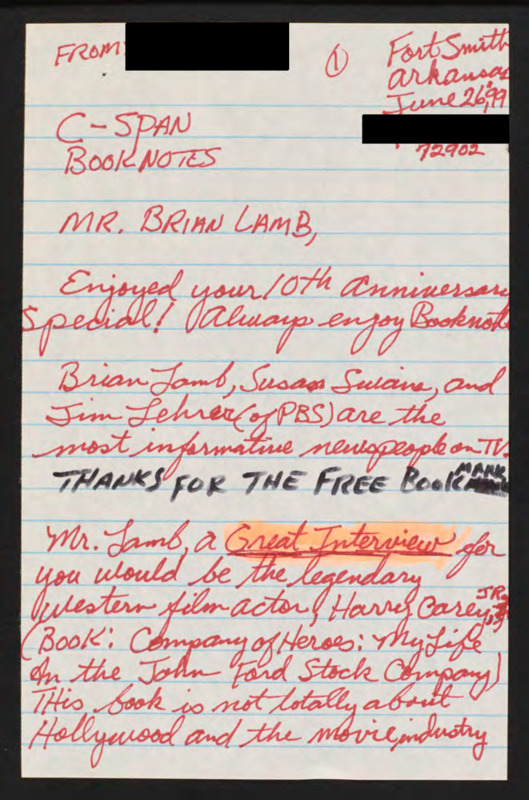 FROM:
①
Fort Smith
Arkansas
June 26, 99
72902
C-SPAN
BOOKNOTES
MR. BRIAN LAMB,
Enjoyed your 10th Anniversary
Special! Always enjoy Booknotes
Brian Lamb, Susan Swain, and
Jim Lehrer (of PBS) are the
most informative newspeople on TV.
THANKS FOR THE FREE BOOKMARK
Mr. Lamb, a Great Interview for
you would be the legendary
Western film actor, Harry Carey, JR.
(BOOK: Company of Heroes: My Life
In the John Ford Stock Company)
THis book is not totally about
Hollywood and the movie industry